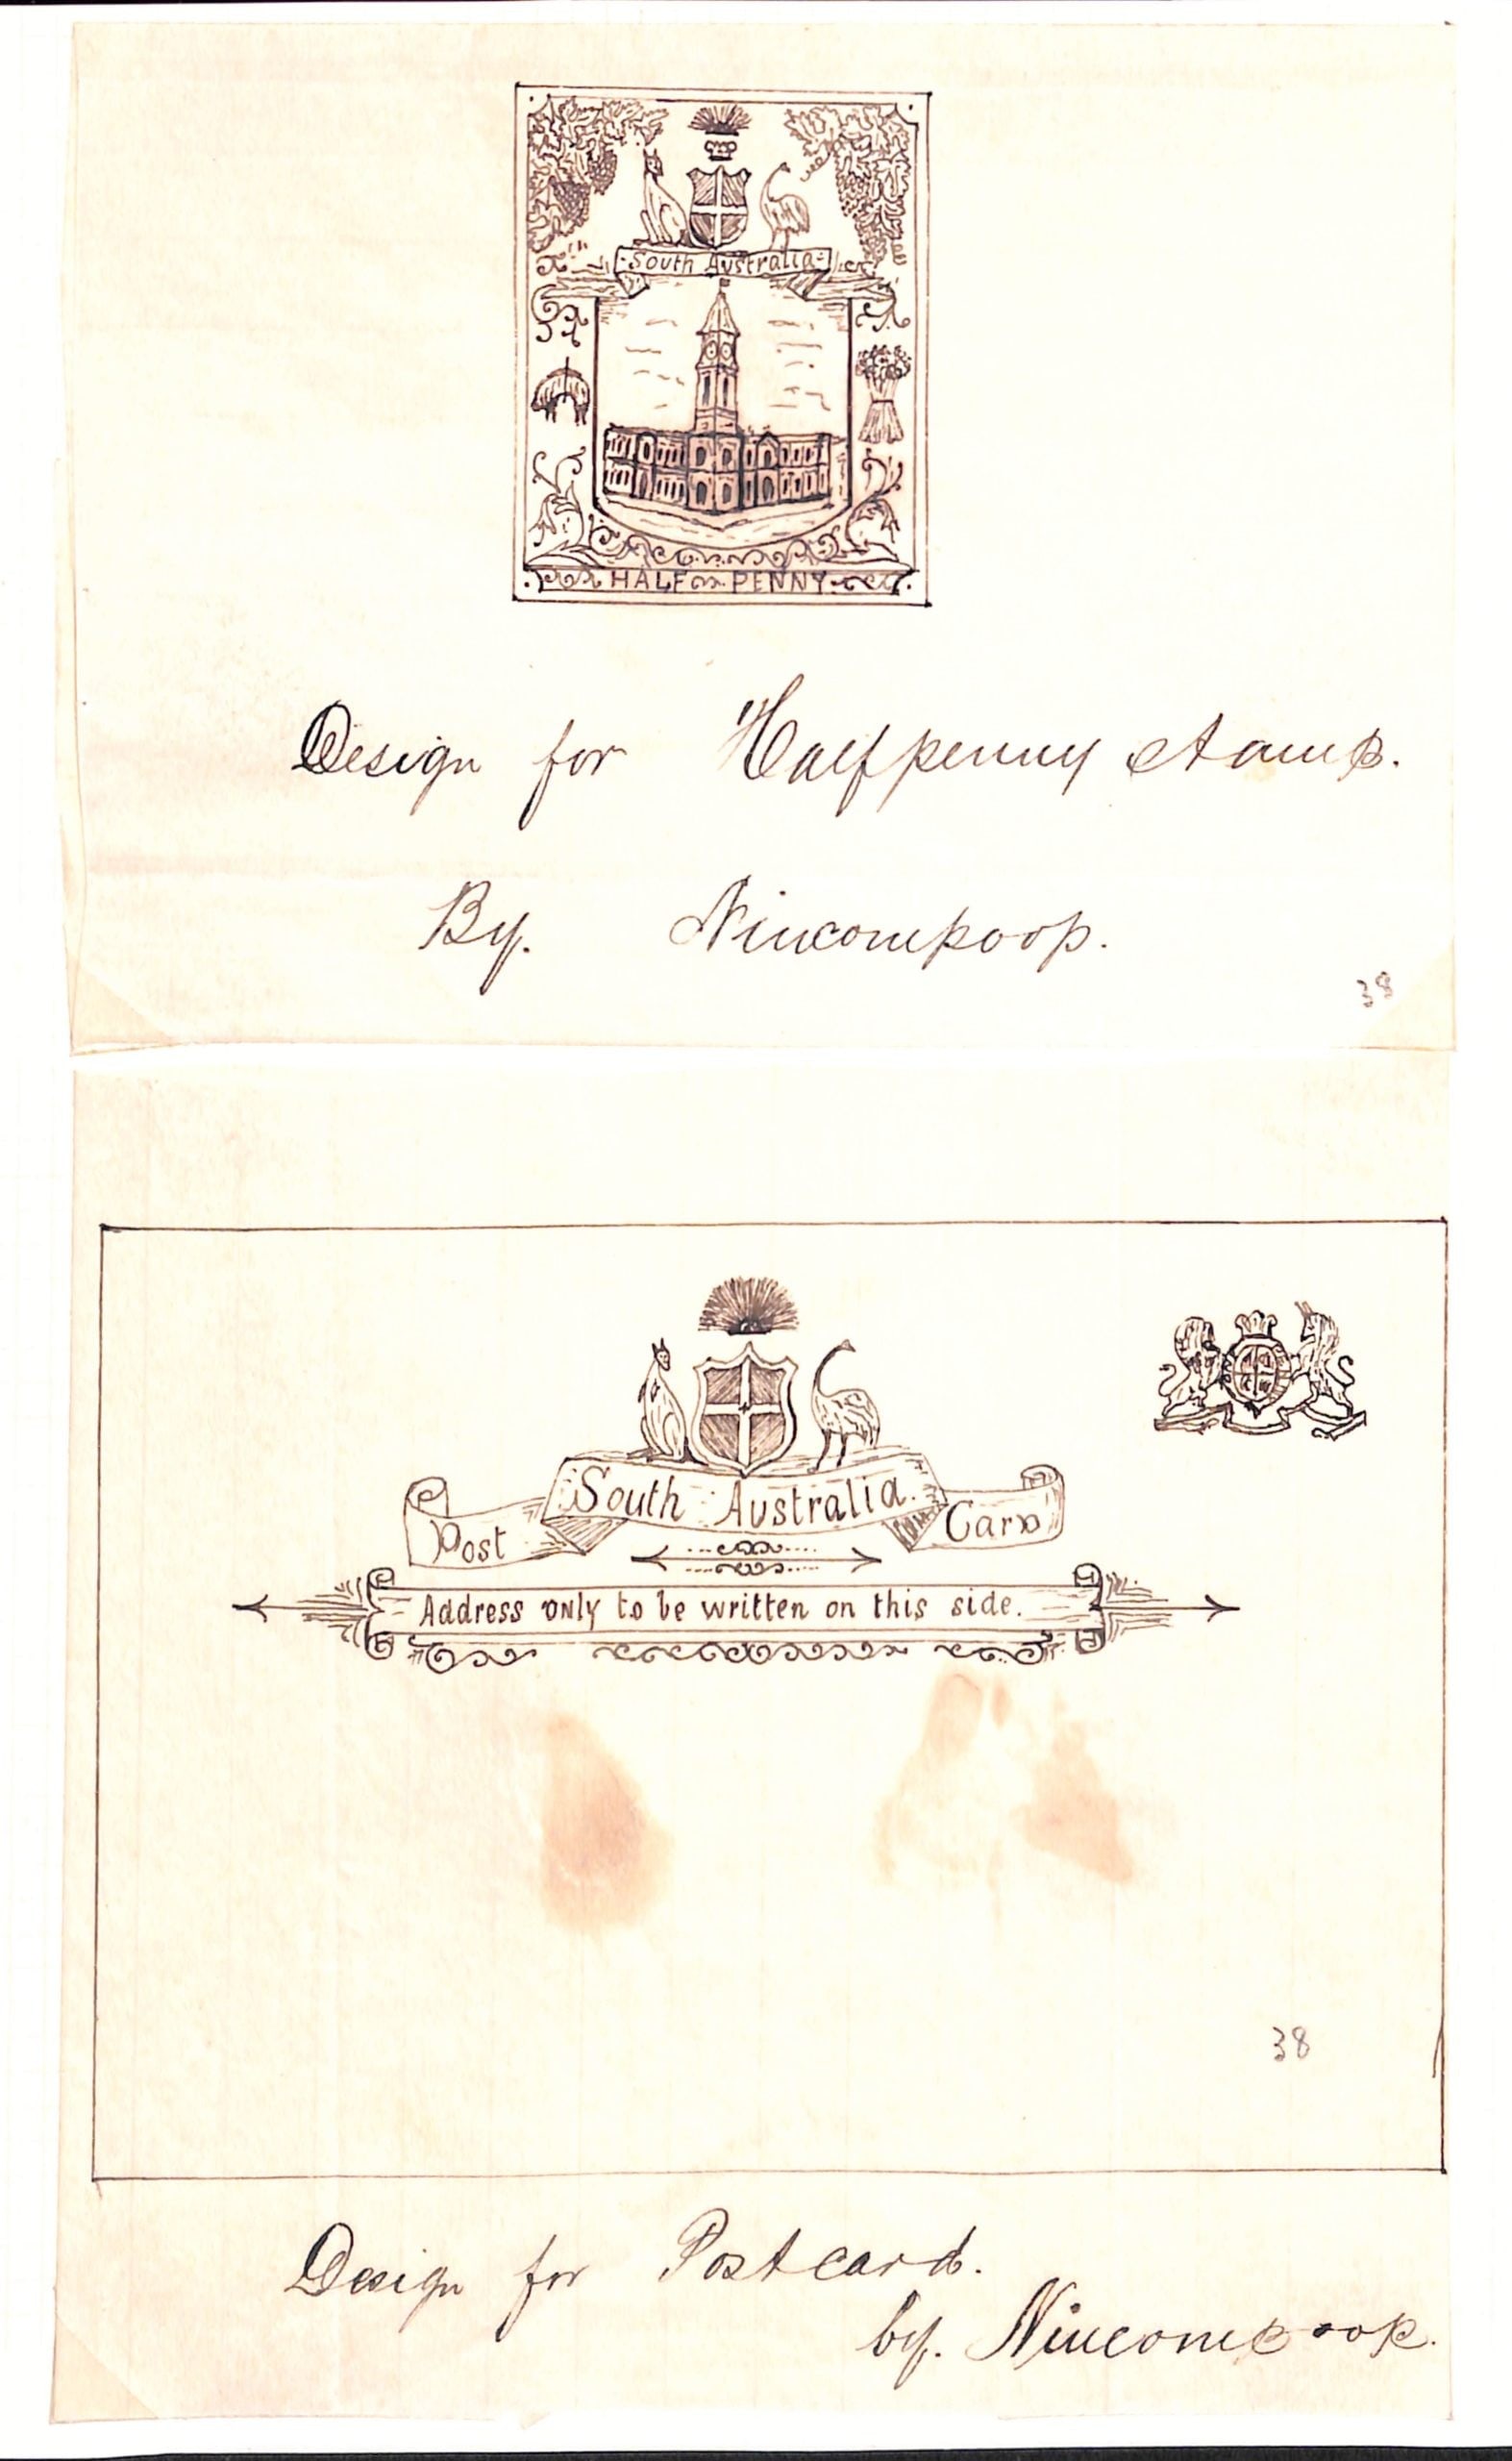 South Australia
HALF PENNY
Design for Halfpenny stamp.
By. Nincompoop.
38
South Australia.
Post Card
Address only to be written on this side.
38
Design for Postcard.
by. Nincompoop.